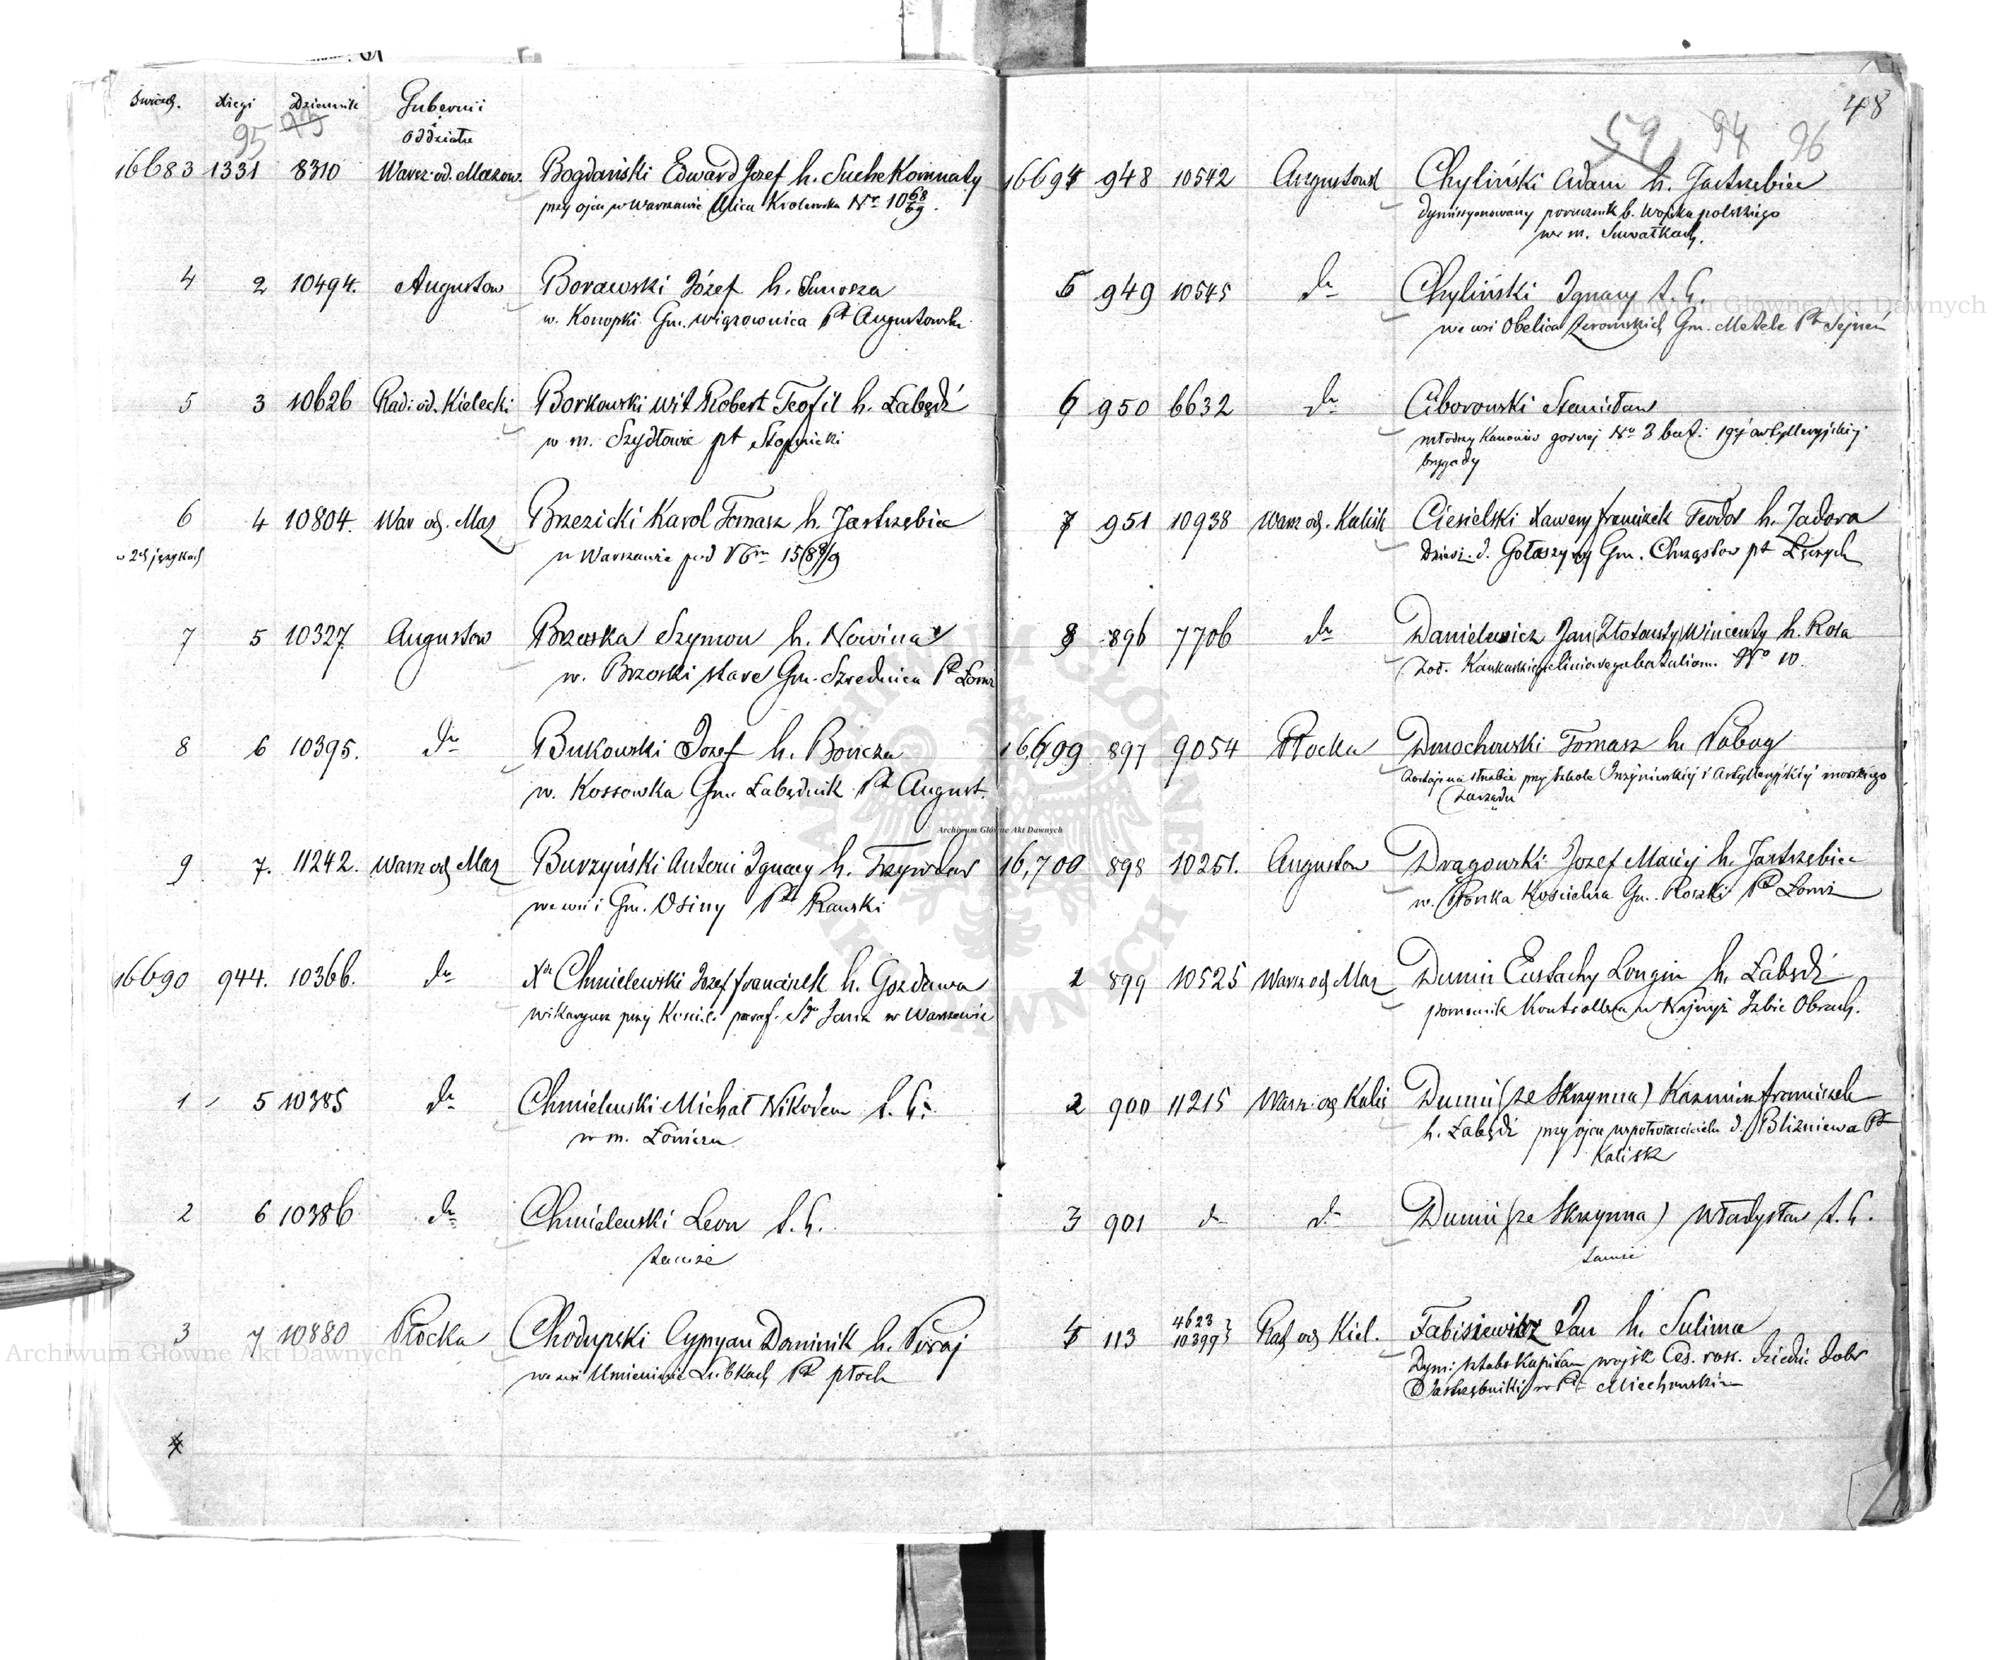 Świad. Xięgi Dziennik Gubernii
i
Oddziału
95 93
16683 1331 8310 Warsz. od. Mazow. Bogdański Edward Jozef h. Suche Komnaty
przy ojcu w Warszawie Ulica Krolewska Nr 1068/69.
4 2 10494. Augustow Borawski Józef h. Junosza
w. Konopki Gm. Wiązownica Pt Augustowski
5 3 10626 Rad: od. Kielecki Borkowski Wit Robert Teofil h. Łabędź
w m. Szydłowie pt Stopnicki
6 4 10804. War od. Maz Brzezicki Karol Tomasz h. Jastrzębiec
w 2ch językach w Warszawie pod Nrm 1588/9
7 5 10327 Augustow Brzoska Szymon h. Nowina
w. Brzoski stare Gm. Szrednica Pt Łomż
8 6 10395. do Bukowski Jozef h. Bończa
w. Kossowka Gm. Łabędnik Pt August.
9 7. 11242. Warsz od Maz Burzyński Antoni Ignacy h. Trzywdar
we wsi i Gm. Osiny Pt Rawski
16690 944. 10366. do Xn Chmielewski Jozef franciszek h. Gozdawa
Wikaryusz przy Kościel. paraf. Sgo Jana w Warszawie
1 5 10385 do Chmielewski Michał Nikodem t. h.
w m. Łowiczu
2 6 10386 do Chmielewski Leon t. h.
tamże
3 7 10880 Płocka Chodupski Cypryan Dominik h. Poraj
we wsi Umieninie Lubkach Pt płock
48
59 94 96
16694 948 10542 Augustowsk Chyliński Adam h. Jastrzębiec
dymissyonowany porucznik b. Wojska polskiego
w m. Suwałkach.
5 949 10545 do Chyliński Ignacy t. h.
we wsi Obelica Gm. Metele Pt Sejneń
6 950 6632 do Ciborowski Stanisław
młodszy Kanonier gornej No 3 bat: 19ej artylleryjskiej
brygady
7 951 10938 Warsz od. Kalisk Ciesielski Xawery franciszek Teodor h. Zadora
Dziedz. d. Gołaszyny Gm. Chrząstow pt Łęczych
8 896 7706 do Danielewicz Jan Złotousty Wincenty h. Rola
Żoł. Kaukaskiego liniowego batalionu No 10.
16,699 897 9054 Płocka Dmochowski Tomasz h. Pobog
zostający na służbie przy szkole Inżynierskiej i Artylleryjskiej morskiego
Zarządu
16,700 898 10251. Augustow Drągowski Jozef Maciej h. Jastrzębiec
w. Płonka Kościelna Gm. Roszki Pt Łomż
1 899 10525 Warsz od Maz Dunin Eustachy Longin h. Łabędź
pomocnik Kontrollera w Najwyż Izbie Obrach.
2 900 11215 Warsz. od Kalis Dunin (ze Skrzynna) Kazimierz franciszek
h. Łabędź przy ojcu współwłaścicielu d. Bliźniewa Pt
Kalisk
3 901 do do Dunin (ze Skrzynna) Władysław t. h.
tamże
4 113 4623 10399} Rad od Kiel. Fabisiewicz Jan h. Sulima
Dym: sztabs Kapitan wojsk Ces. ross. dziedzic dobr
Jastrzębniki w Pt Miechowskim
Archiwum Główne Akt Dawnych
Archiwum Główne Akt Dawnych
Archiwum Główne Akt Dawnych
ARCHIWUM GŁÓWNE AKT DAWNYCH